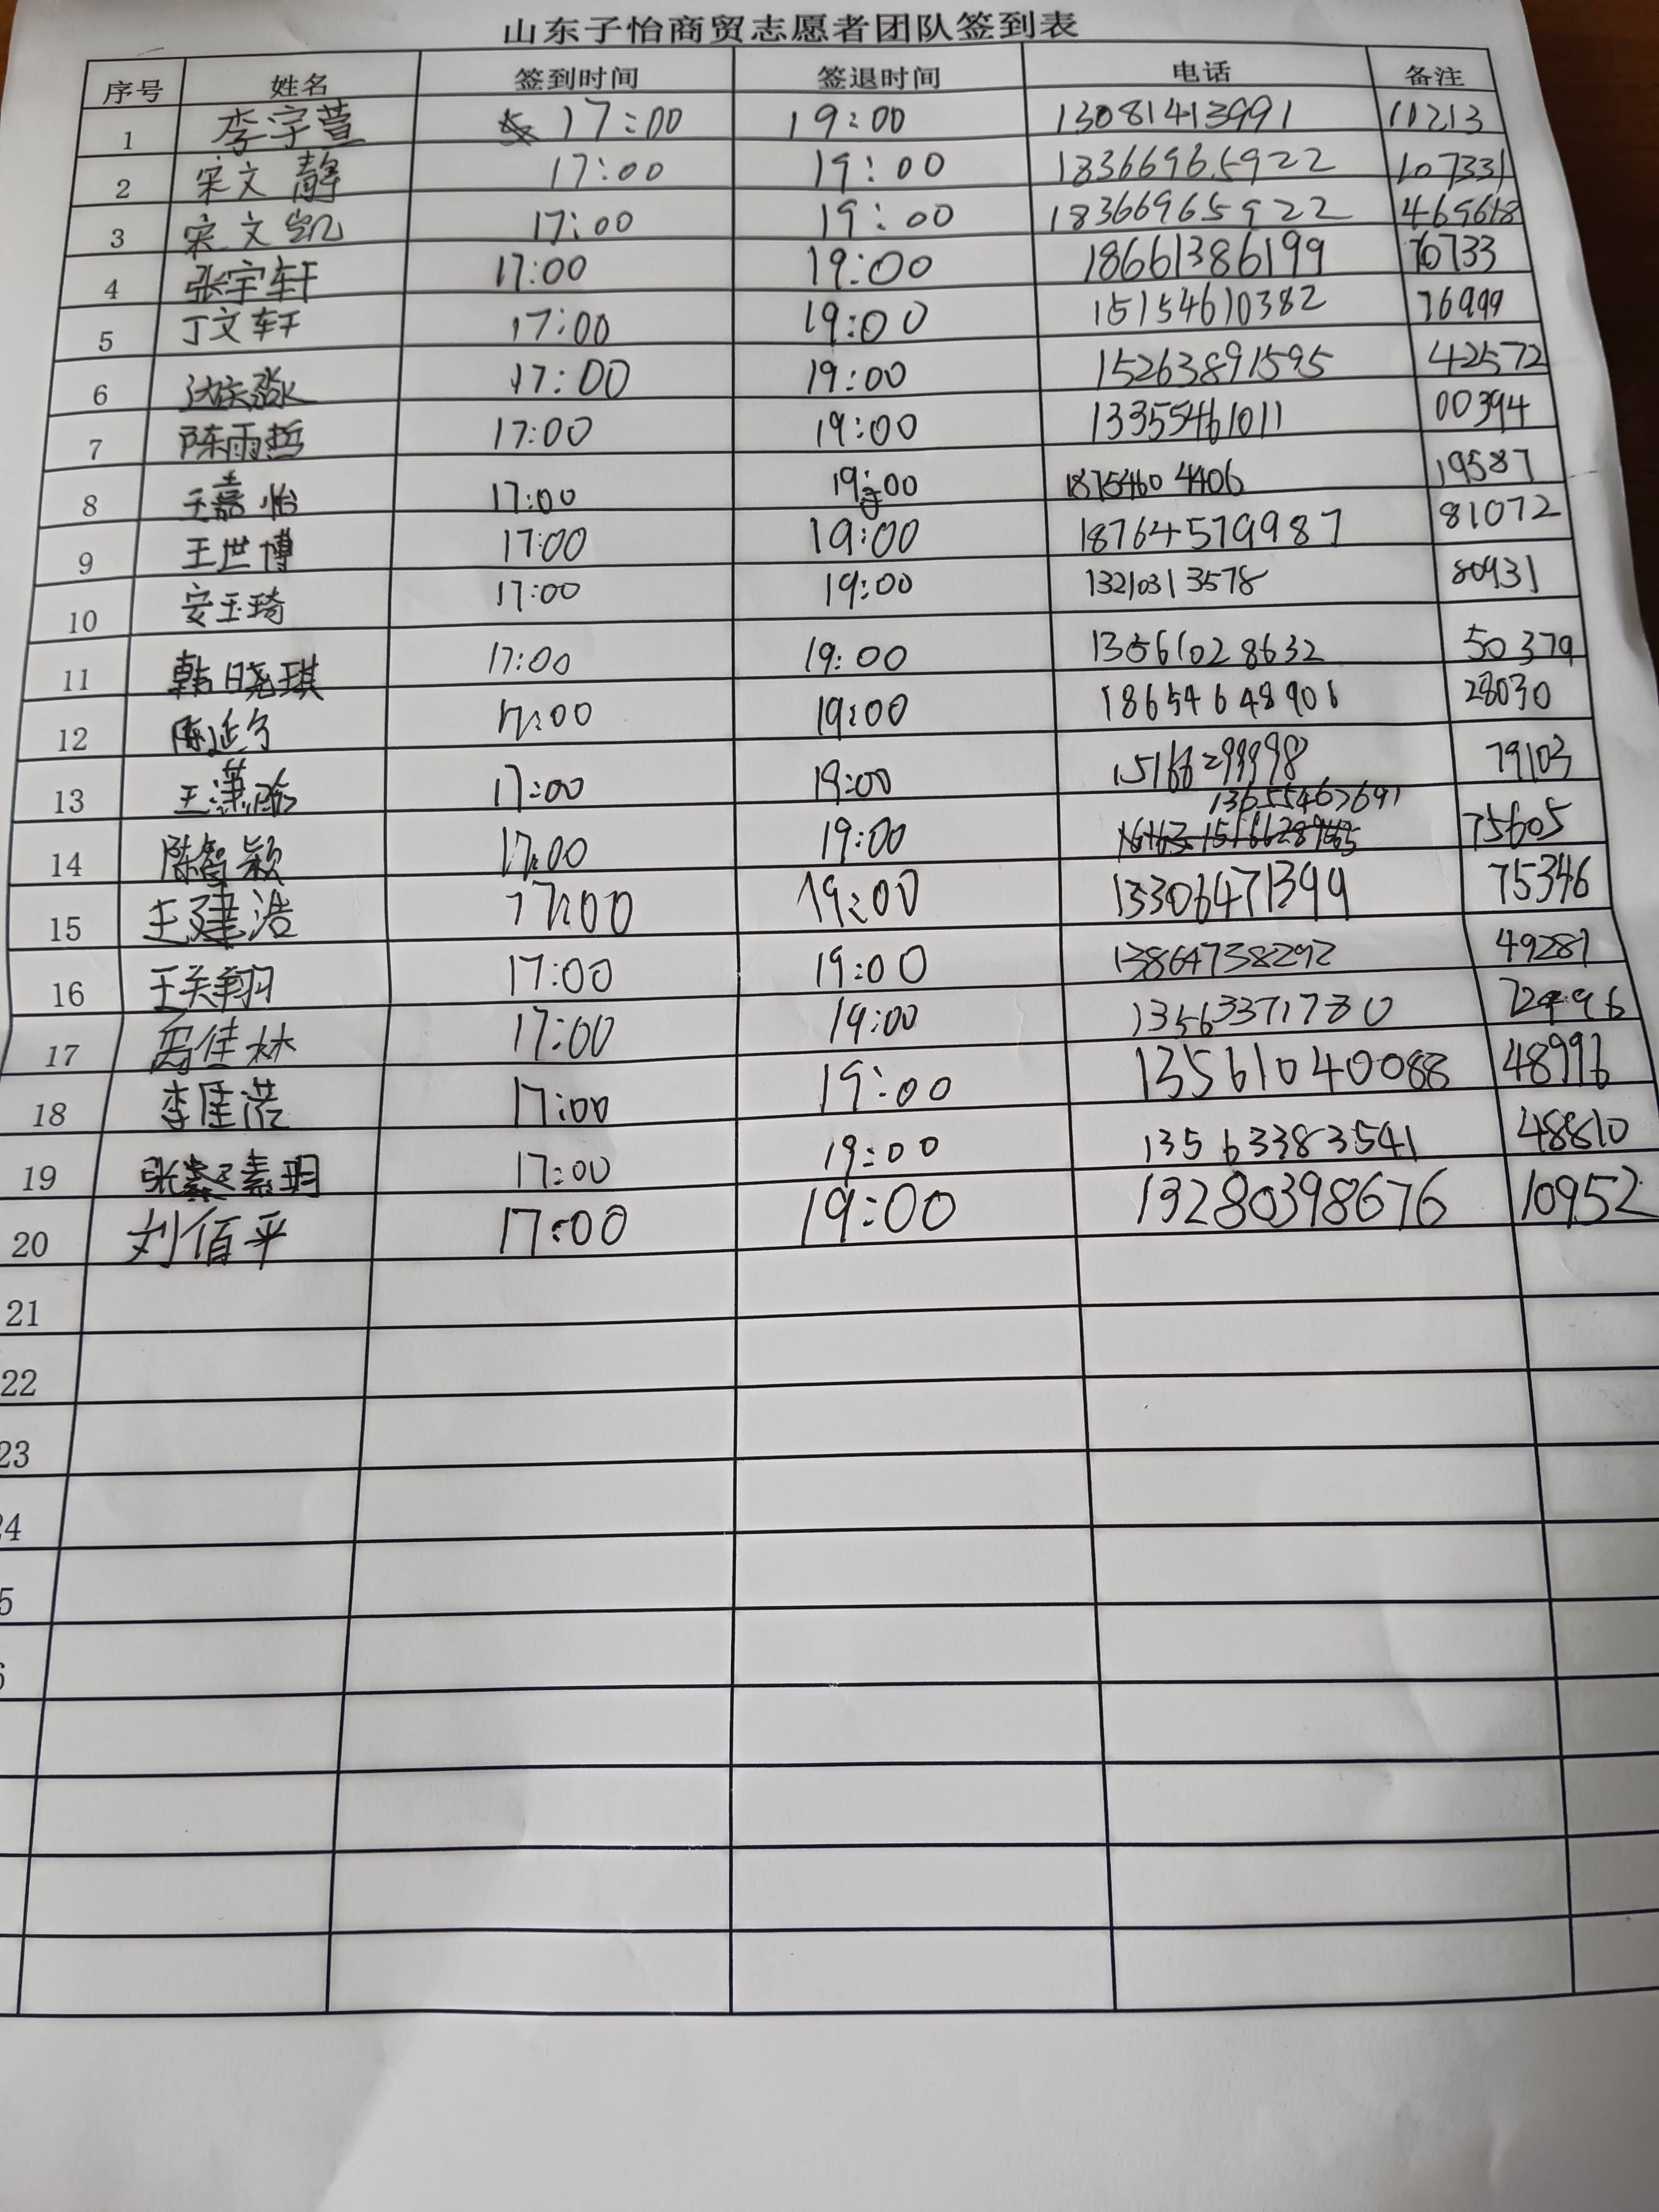 山东子怡商贸志愿者团队签到表
序号 姓名 签到时间 签退时间 电话 备注
1 李宇萱 17:00 19:00 13081413991 11213
2 宋文静 17:00 19:00 18366965922 107331
3 宋文凯 17:00 19:00 18366965922 469618
4 张宇轩 17:00 19:00 18661386199 70733
5 丁文轩 17:00 19:00 15154610382 76999
6 17:00 19:00 15263891595 42572
7 陈雨哲 17:00 19:00 13355461011 00394
8 王嘉怡 17:00 19:00 18754604406 19587
9 王世博 17:00 19:00 18764579987 81072
10 安玉琦 17:00 19:00 13210313578 80931
11 韩晓琪 17:00 19:00 13561028632 50379
12 陈延宁 17:00 19:00 18654648906 28030
13 王潇 17:00 19:00 15166299998 79103
14 陈智颖 17:00 19:00 13655467691 75605
15 王建浩 17:00 19:00 13306471399 75346
16 王关翔 17:00 19:00 13864738292 49287
17 高佳林 17:00 19:00 13563371730 72496
18 李匡浩 17:00 19:00 13561040088 48996
19 张素玥 17:00 19:00 13563383541 48810
20 刘佰平 17:00 19:00 13280398676 10952
21
22
23
24
5
6